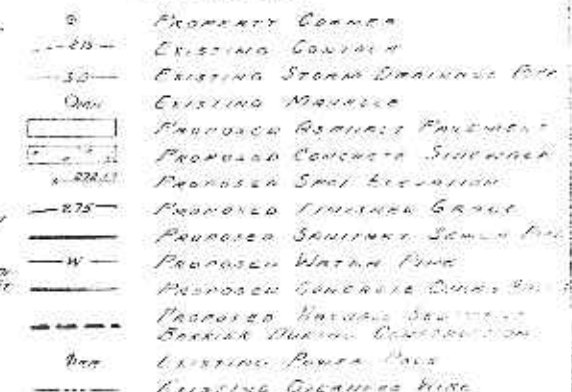 Property Corner
-- 215 -- Existing Contour
-- S.D. -- Existing Storm Drainage Pipe
Existing Manhole
Proposed Asphalt Pavement
Proposed Concrete Sidewalk
Proposed Spot Elevation
-- 275 -- Proposed Finished Grade
Proposed Sanitary Sewer Pipe
-- W -- Proposed Water Pipe
Proposed Concrete Curb
Proposed
Barrier During Construction
Existing Power Pole
Existing Overhead Wire